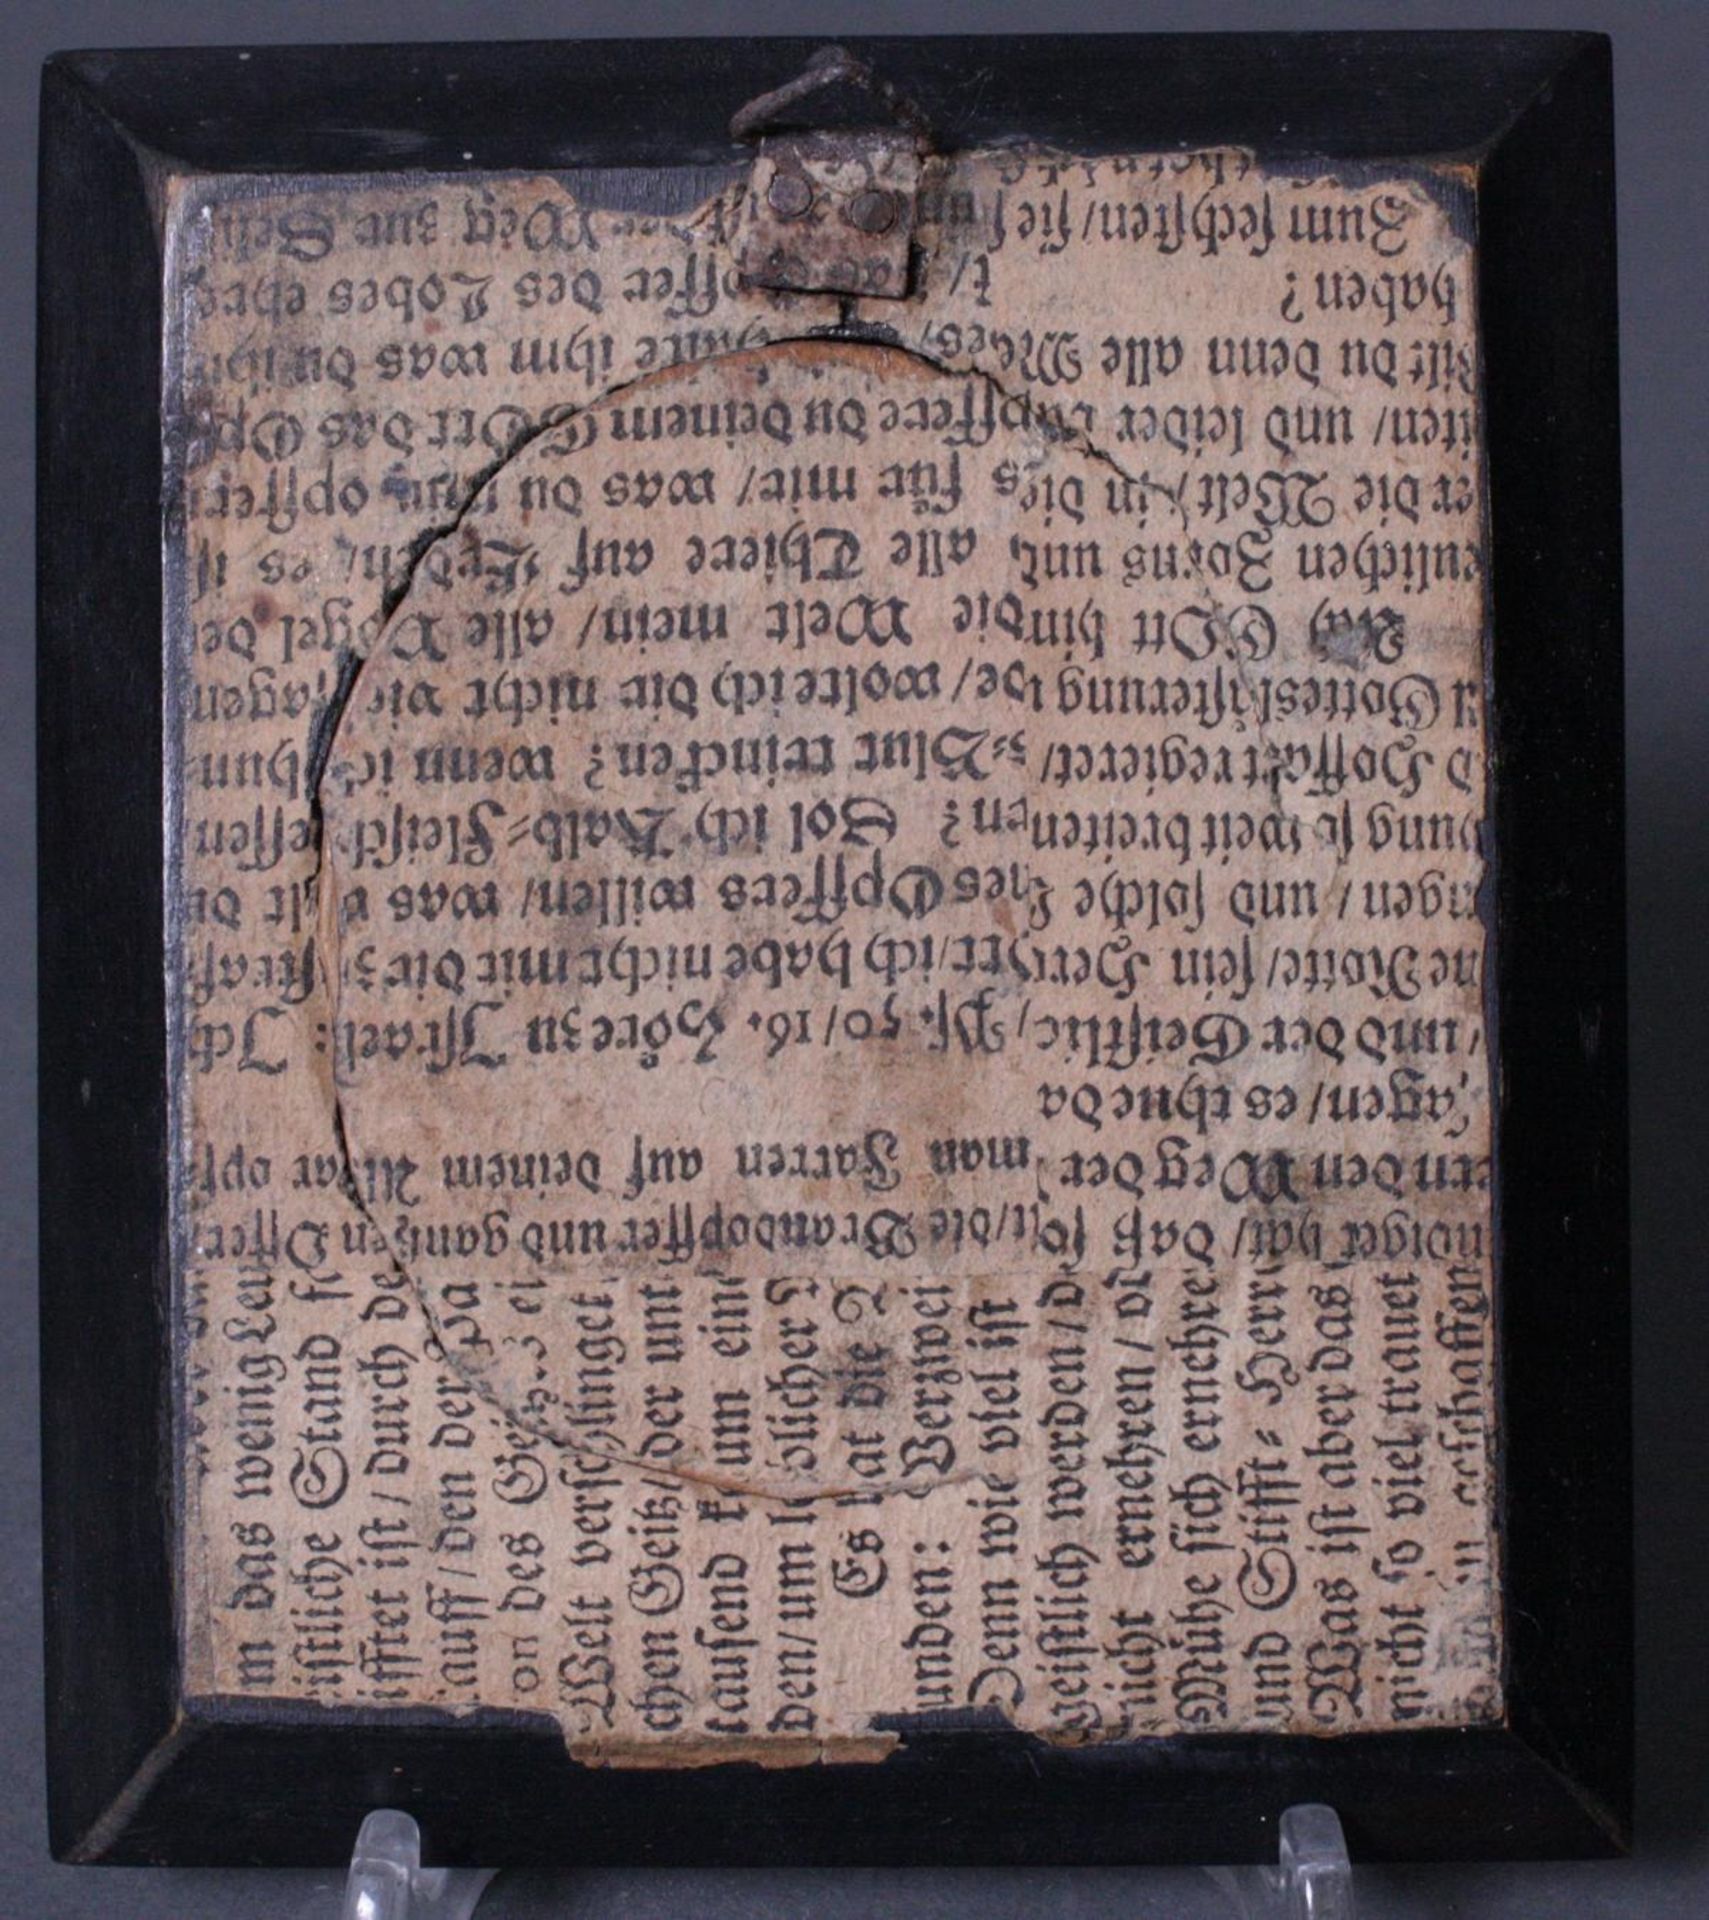 ndiget hat/ daß
ern den Weg der
sagen/ es thue da
/und der Geistlic
ne Rotte/ sein Hertz
ngen / und solche
hung so weit breiten
d Hoffart regieret/
Gotteslästerung
Ach GOtt
eulichen Zorns und
er die Welt / in die
iten / und leider
Bist du denn alle
haben?
Zum sechsten/
die Brandopffer und gantzen Opffer
man Farren auf deinem Altar opf-
Ps. 50/16. Höre zu Israel: Ich
ich habe nicht mit dir straf
Opffers willen/ was wilt du
en? Sol ich Kalb-Fleisch essen/
s-Blut trincken? wenn ich hun
wolte ich dir nicht sagen
die Welt mein/ alle Vögel de
alle Thiere auf Erden/ es is
für mir/ was du ihm opffer
Opffere du deinem GOtt das Op
halte ihm was du ihm
Opffer des Lobes ehre
der Weg zur
m das wenig Leu
istliche Stand
ifftet ist / durch de
auff / den der
on des Geitz
Welt verschlinget
chen Geitz / der unt
tausend kum ein
den/ um licher
Es hat die
unden: Verzwei
Denn wie viel ist
geistlich werden / d
nicht ernehren / od
Mühe sich ernehre
und Stifft = Herr
Was ist aber das
nicht so viel trauet
geschaffen